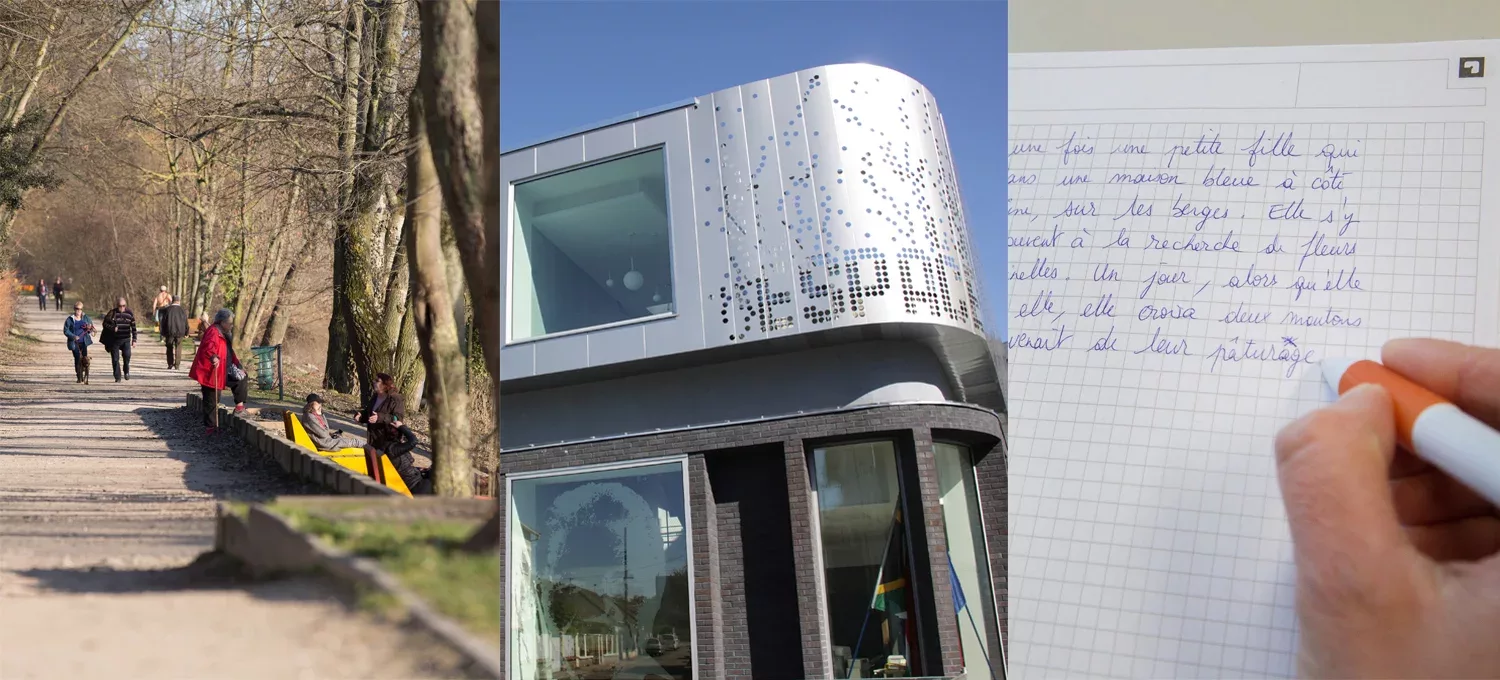 une fois une petite fille qui
ans une maison bleue à côté
ine, sur les berges. Elle s'y
ouvent à la recherche de fleurs
nelles. Un jour, alors qu'elle
elle, elle croisa deux moutons
venait de leur pâturage